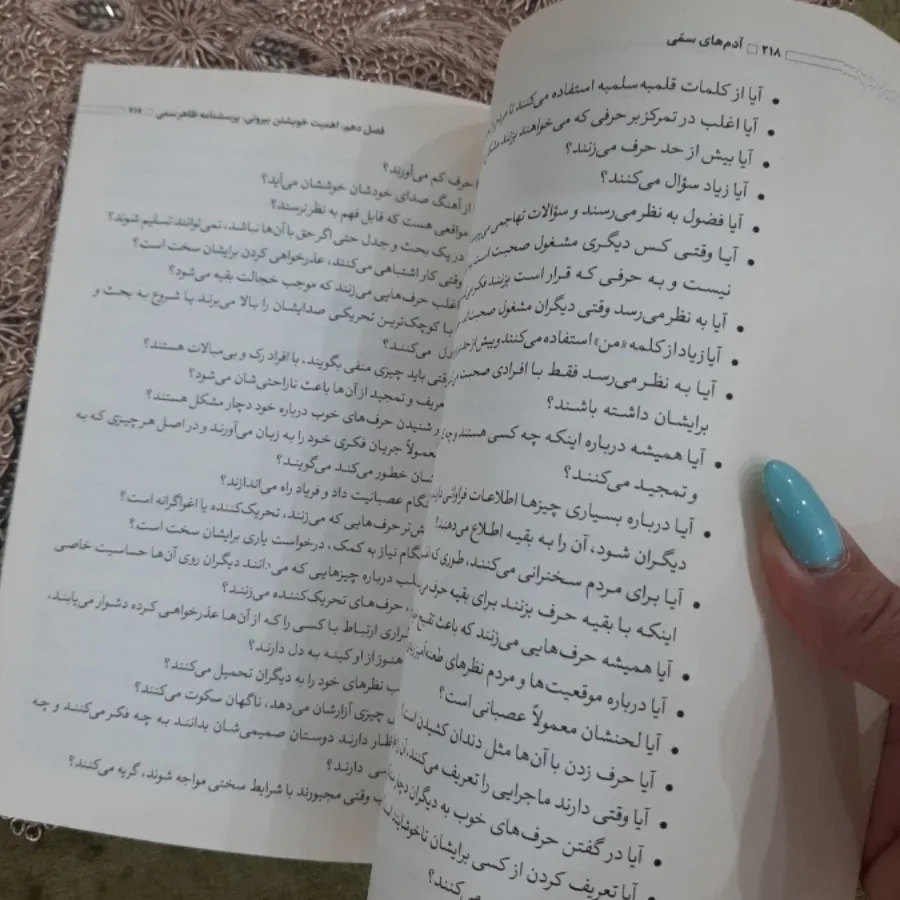 ۲۱۸ آدم‌های سفی
• آیا از کلمات قلمبه سلمبه استفاده می‌کنند تا مردم
• آیا اغلب در تمرکز بر حرفی که می‌خواهند بزنند
• آیا بیش از حد حرف می‌زنند؟
• آیا زیاد سؤال می‌کنند؟
• آیا فضول به نظر می‌رسند و سؤالات تهاجمی
• آیا وقتی کس دیگری مشغول صحبت است
نیست و به حرفی که قرار است بزنند فکر
• آیا به نظر می‌رسد وقتی دیگران مشغول
• آیا زیاد از کلمه «من» استفاده می‌کنند و بیش از حد
• آیا به نظر می‌رسد فقط با افرادی صحبت
برایشان داشته باشند؟
• آیا همیشه درباره اینکه چه کسی هستند و
و تمجید می‌کنند؟
• آیا درباره بسیاری چیزها اطلاعات فراوانی
دیگران شود، آن را به بقیه اطلاع می‌دهند؟
• آیا برای مردم سخنرانی می‌کنند، طوری که
اینکه با بقیه حرف بزنند برای بقیه حرف
• آیا همیشه حرف‌هایی می‌زنند که باعث
• آیا درباره موقعیت‌ها و مردم نظرهای طعنه‌آمیز
• آیا لحنشان معمولاً عصبانی است؟
• آیا حرف زدن با آن‌ها مثل دندان کشیدن است؟
• آیا وقتی دارند ماجرایی را تعریف می‌کنند،
• آیا در گفتن حرف‌های خوب به دیگران دچار
• آیا تعریف کردن از کسی برایشان ناخوشایند
می‌کنند؟
فصل دهم: اهمیت خویشتن بیرونی: پرسشنامه ظاهر سمی ۲۱۹
حرف کم می‌آورند؟
از آهنگ صدای خودشان خوششان می‌آید؟
مواقعی هست که قابل فهم به نظر نرسند؟
در یک بحث و جدل حتی اگر حق با آن‌ها نباشد، نمی‌توانند تسلیم شوند؟
وقتی کار اشتباهی می‌کنند، عذرخواهی کردن برایشان سخت است؟
اغلب حرف‌هایی می‌زنند که موجب خجالت بقیه می‌شود؟
با کوچک‌ترین تحریکی صدایشان را بالا می‌برند یا شروع به بحث و
می‌کنند؟
وقتی باید چیزی منفی بگویند، با افراد رک و بی‌مبالات هستند؟
تعریف و تمجید از آن‌ها باعث ناراحتی‌شان می‌شود؟
شنیدن حرف‌های خوب درباره خود دچار مشکل هستند؟
معمولاً جریان فکری خود را به زبان می‌آورند و در اصل هر چیزی که به
خطور می‌کند می‌گویند؟
عصبانیت داد و فریاد راه می‌اندازند؟
حرف‌هایی که می‌زنند، تحریک‌کننده یا اغواگرانه است؟
نیاز به کمک، درخواست یاری برایشان سخت است؟
درباره چیزهایی که می‌دانند دیگران روی آن‌ها حساسیت خاصی
حرف‌های تحریک‌کننده می‌زنند؟
ارتباط با کسی را که از آن‌ها عذرخواهی کرده دشوار می‌یابند،
هنوز از او کینه به دل دارند؟
نظرهای خود را به دیگران تحمیل می‌کنند؟
چیزی آزارشان می‌دهد، ناگهان سکوت می‌کنند؟
دارند دوستان صمیمی‌شان بدانند به چه فکر می‌کنند و چه
دارند؟
وقتی مجبورند با شرایط سختی مواجه شوند، گریه می‌کنند؟